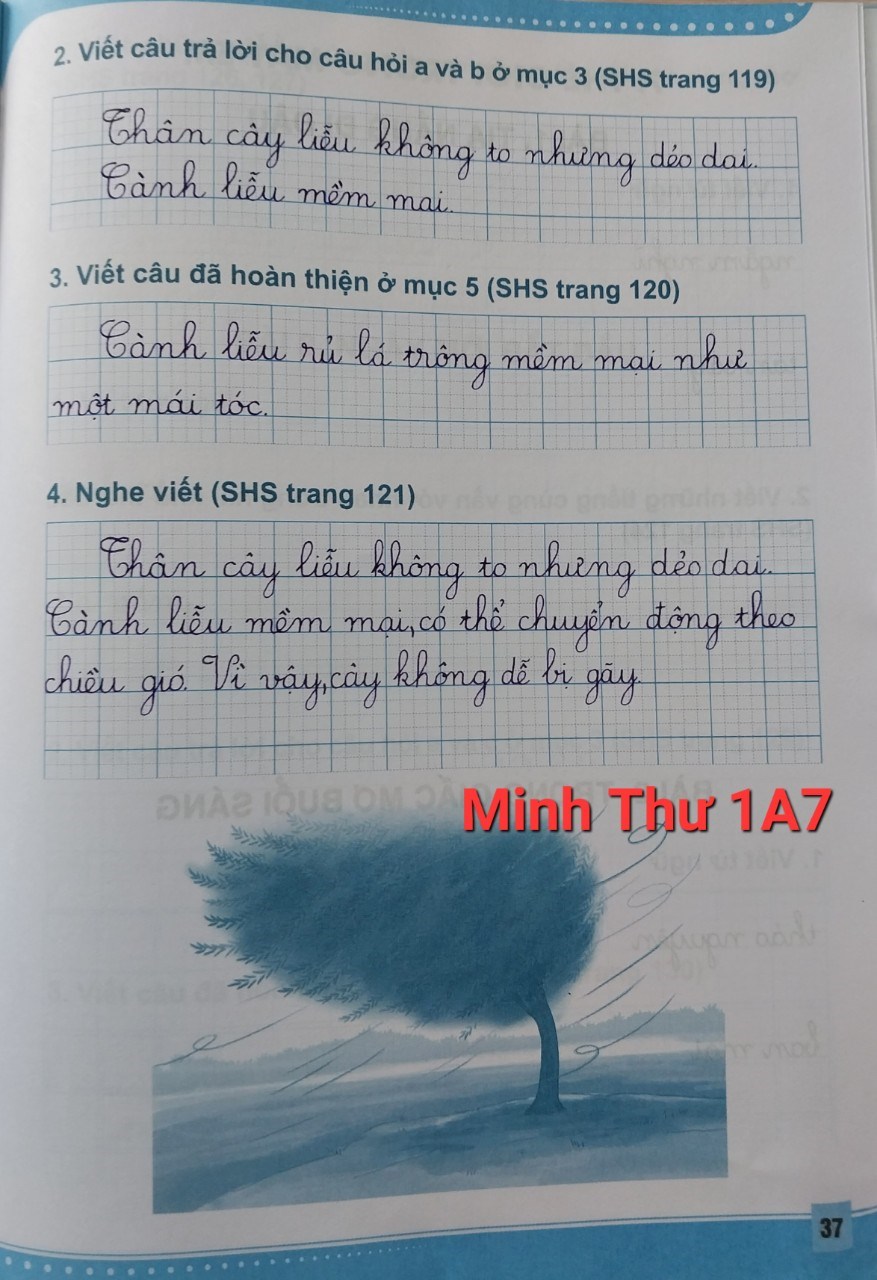 2. Viết câu trả lời cho câu hỏi a và b ở mục 3 (SHS trang 119)
Thân cây liễu không to nhưng dẻo dai.
Cành liễu mềm mại.
3. Viết câu đã hoàn thiện ở mục 5 (SHS trang 120)
Cành liễu rủ lá trông mềm mại như
một mái tóc.
4. Nghe viết (SHS trang 121)
Thân cây liễu không to nhưng dẻo dai.
Cành liễu mềm mại, có thể chuyển động theo
chiều gió. Vì vậy, cây không dễ bị gãy.
Minh Thư 1A7
37